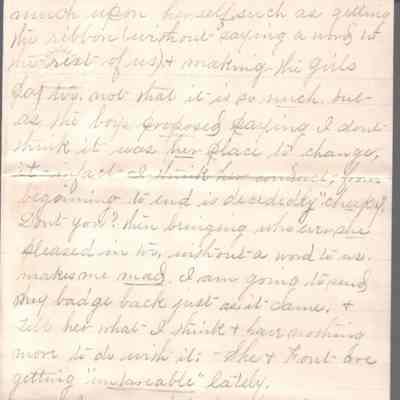 much upon herself such as getting
the ribbon (without saying a word to
the rest of us) & making the girls
pay too. not that it is so much, but
as the boys proposed paying I dont
think it was her place to change,
it in fact I think her conduct, from
beginning to end is decidedly "cheap".
Dont you? then bringing whoever she
pleased in too, without a word to us.
makes me mad. I am going to send
my badge back just as it came, &
tell her what I think & have nothing
more to do with it: - She & are
getting "unbareable" lately.